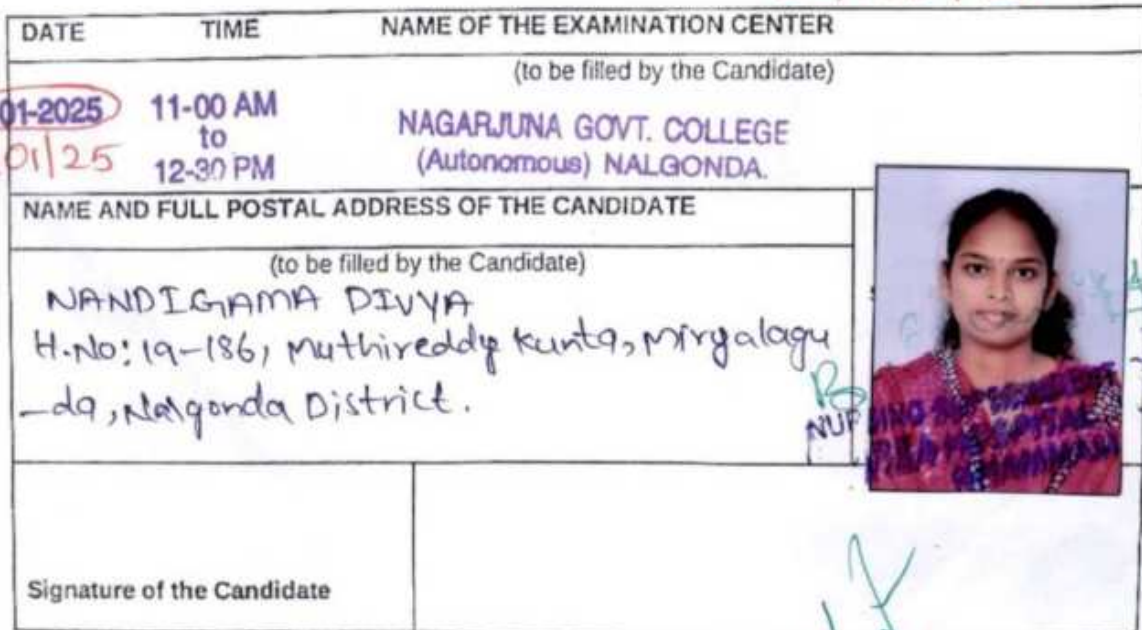 DATE TIME NAME OF THE EXAMINATION CENTER
(to be filled by the Candidate)
01-2025 11-00 AM
to
01/25 12-30 PM
NAGARJUNA GOVT. COLLEGE
(Autonomous) NALGONDA.
NAME AND FULL POSTAL ADDRESS OF THE CANDIDATE
(to be filled by the Candidate)
NANDIGAMA DIVYA
H.No: 19-186, Muthireddy Kunta, Miryalagu
-da, Nalgonda District.
Signature of the Candidate